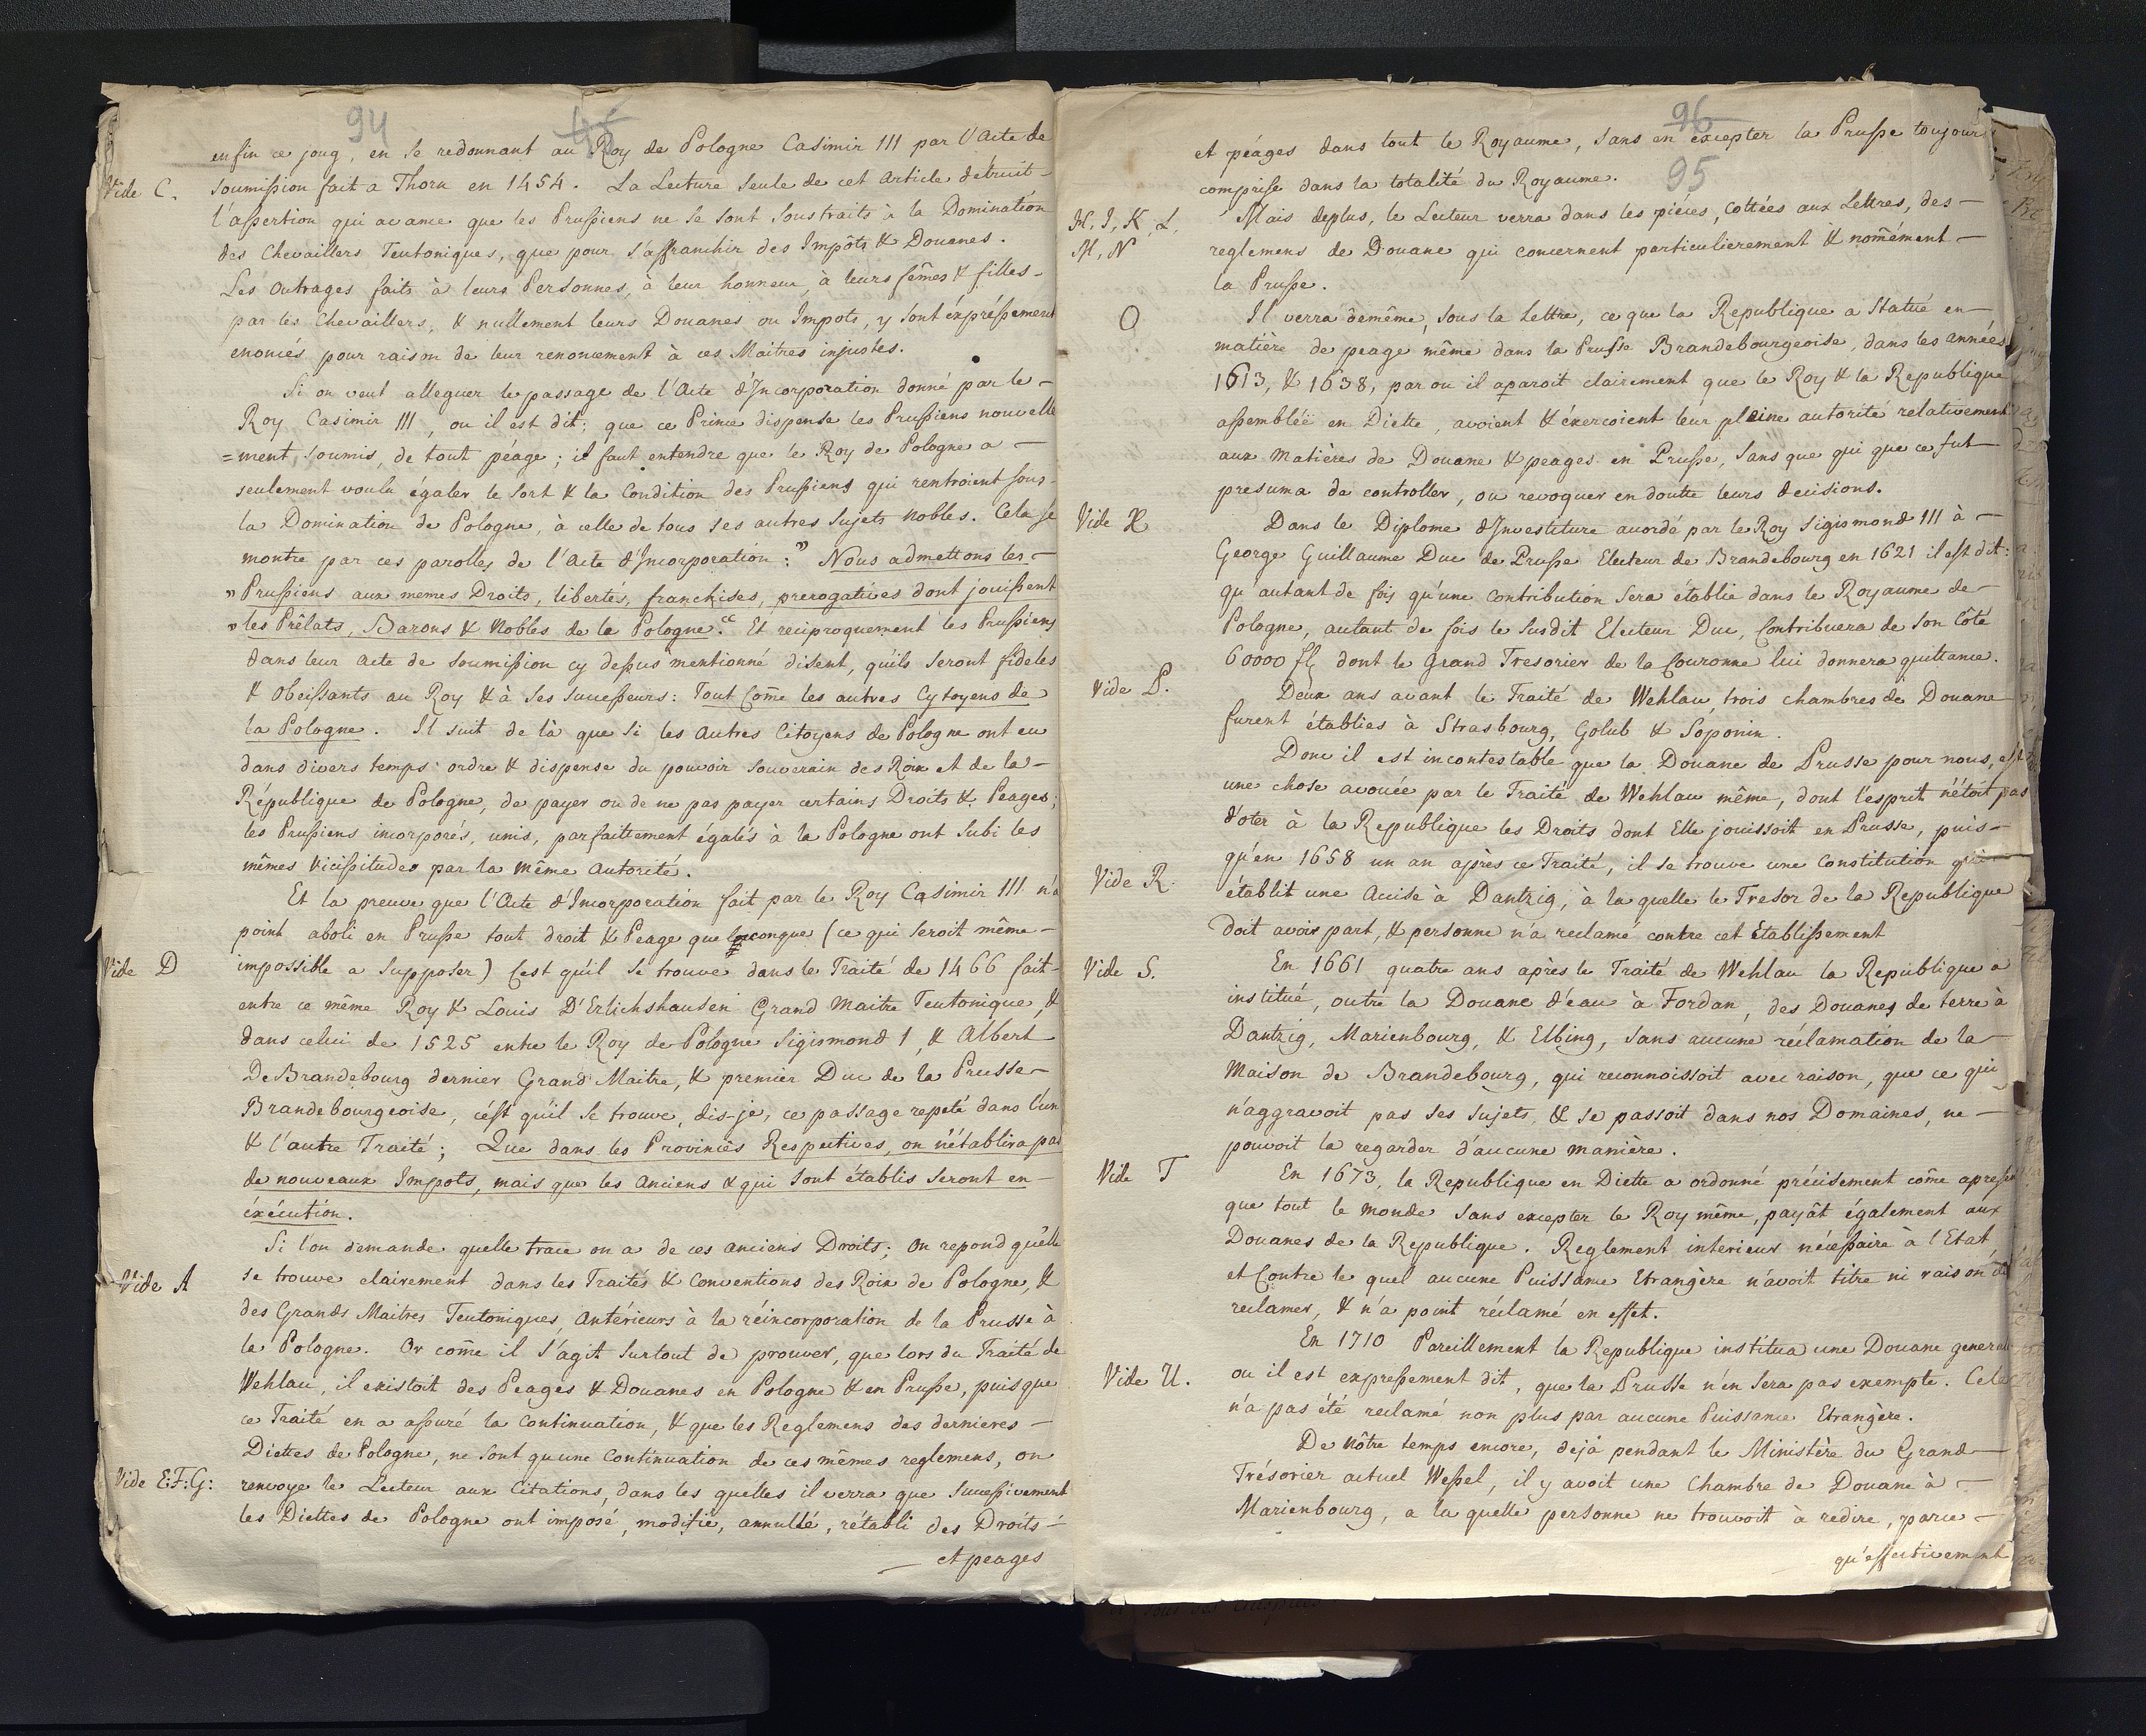 94
enfin ce joug, en se redonnant au Roy de Pologne Casimir III par l'acte de
Vide C. soumission fait a Thorn en 1454. La Lecture seule de cet article detruit
l'assertion qui avance que les Prussiens ne se sont soustraits à la Domination
des Chevailliers Teutoniques, que pour s'affranchir des Impôts & Douanes.
Les outrages faits à leurs Personnes, à leur honneur, à leurs fêmes & filles
par les Chevailliers, & nullement leurs Douanes ou Impots, y sont éxpréssement
enoncés pour raison de leur renoncement à ces Maitres injustes.
Si on veut alleguer le passage de l'Acte d'Incorporation donné par le
Roy Casimir III, ou il est dit: que ce Prince dispense les Prussiens nouvelle
=ment, soumis, de tout péage; il faut entendre que le Roy de Pologne a
seulement voulu égaler le sort & la Condition des Prussiens qui rentroient sous
la Domination de Pologne, à celle de tous ses autres sujets nobles. Cela se
montre par ces parolles de l'acte d'Incorporation: „Nous admettons les
„Prussiens aux memes Droits, libertés, franchises, prerogatives dont jouissent
„les Prêlats, Barons & Nobles de la Pologne.“ Et reciproquement les Prussiens
dans leur acte de soumission cy dessus mentionné disent, qu'ils seront fideles
& obeissants au Roy & à ses successeurs: Tout Come les autres Cytoyens de
la Pologne. Il suit de là que si les autres Citoyens de Pologne ont eu
dans divers temps ordre & dispense du pouvoir souverain des Roix et de la
République de Pologne, de payer ou de ne pas payer certains Droits & Peages;
les Prussiens incorporés, unis, parfaittement égalés à la Pologne ont subi les
mêmes vicissitudes par la même autorité.
Et la preuve que l'Acte d'Incorporation fait par le Roy Casimir III n'a
point aboli en Prusse tout droit & Peage quelconque (ce qui seroit même
Vide D impossible a supposer) c'est qu'il se trouve dans le Traité de 1466 fait
entre ce même Roy & Louis D'Erlichshausen Grand Maitre Teutonique, &
dans celui de 1525 entre le Roy de Pologne Sigismond I, & Albert
De Brandebourg dernier Grand Maitre, & premier Duc de la Prusse
Brandebourgeoise, c'est qu'il se trouve, dis-je, ce passage repeté dans l'un
& l'autre Traité; Que dans les Provinces Respectives, on n'établira pas
de nouveaux Impots, mais que les anciens & qui sont établis seront en
éxécution.
Si l'on demande quelle trace on a de ces anciens Droits; On repond qu'elle
Vide A se trouve clairement dans les Traités & Conventions des Roix de Pologne, &
des Grands Maitres Teutoniques, antérieurs à la réincorporation de la Prusse à
la Pologne. Or come il s'agit surtout de prouver, que lors du Traité de
Wehlau, il existoit des Peages & Douanes en Pologne & en Prusse, puisque
ce Traité en a assuré la continuation, & que les Reglemens des dernieres
Diettes de Pologne, ne sont qu'une Continuation de ces mêmes reglemens, on
Vide E:F:G: renvoye le Lecteur aux Citations, dans les quelles il verra que successivement
les Diettes de Pologne ont imposé, modifié, annullé, rétabli des Droits
et peages
96
95
et péages dans tout le Royaume, sans en excepter la Prusse toujours
comprise dans la totalité du Royaume.
H, I, K, L, Mais deplus, le Lecteur verra dans les piéces, cottées aux Lettres, des
M, N reglemens de Douane qui concernent particulierement & nomément
la Prusse.
O Il verra demême, sous la Lettre, ce que la Republique a Statué en
matière de peage même dans la Prusse Brandebourgeoise, dans les années
1613, & 1638, par ou il aparoit clairement que le Roy & la Republique
assemblée en Diette, avoient & éxercoient leur pleine autorité relativement
aux matières de Douane & peages en Prusse, sans que qui que ce fut
presuma de controller, ou revoquer en doutte leurs decisions.
Vide X Dans le Diplome d'Investiture accordé par le Roy Sigismond III à
George Guillaume Duc de Prusse Electeur de Brandebourg en 1621 il est dit:
qu'autant de fois qu'une Contribution sera établie dans le Royaume de
Pologne, autant de fois le susdit Electeur Duc, Contribuera de son Côté
60000 fl dont le Grand Tresorier de la Couronne lui donnera quittance.
Vide P. Deux ans avant le Traité de Wehlau, trois chambres de Douane
furent établies à Strasbourg, Golub & Soponin.
Donc il est incontestable que la Douane de Prusse pour nous, est
une chose avouée par le Traité de Wehlau même, dont l'esprit n'étoit pas
d'oter à la Republique les Droits dont Elle jouissoit en Prusse, puis-
qu'en 1658 un an après ce Traité, il se trouve une Constitution qui
Vide R. établit une Accise à Dantzig, à la quelle le Tresor de la Republique
doit avoir part, & personne n'a reclamé contre cet Etablissement
Vide S. En 1661 quatre ans après le Traité de Wehlau la Republique a
institué, outre la Douane d'eau à Fordan, des Douanes de terre à
Dantzig, Marienbourg, & Elbing, sans aucune réclamation de la
Maison de Brandebourg, qui reconnoissoit avec raison, que ce qui
n'aggravoit pas ses sujets, & se passoit dans nos Domaines, ne
pouvoit la regarder d'aucune manière.
Vide T En 1673, la Republique en Diette a ordonné précisement côme
que tout le monde sans excepter le Roy même, payât également aux
Douanes de la Republique. Reglement interieur nécessaire à l'Etat,
et Contre le quel aucune Puissance Etrangère n'avoit titre ni raison de
reclamer, & n'a point réclamé en effet.
En 1710 Pareillement la Republique institua une Douane general
Vide U. ou il est expressement dit, que la Prusse n'en sera pas exempte. Cela
n'a pas été reclamé non plus par aucune Puissance Etrangère.
De nôtre temps encore, dejà pendant le Ministère du Grand
Trésorier actuel Wessel, il y avoit une Chambre de Douane à
Marienbourg, a la quelle personne ne trouvoit à redire, parce
qu'effectivement